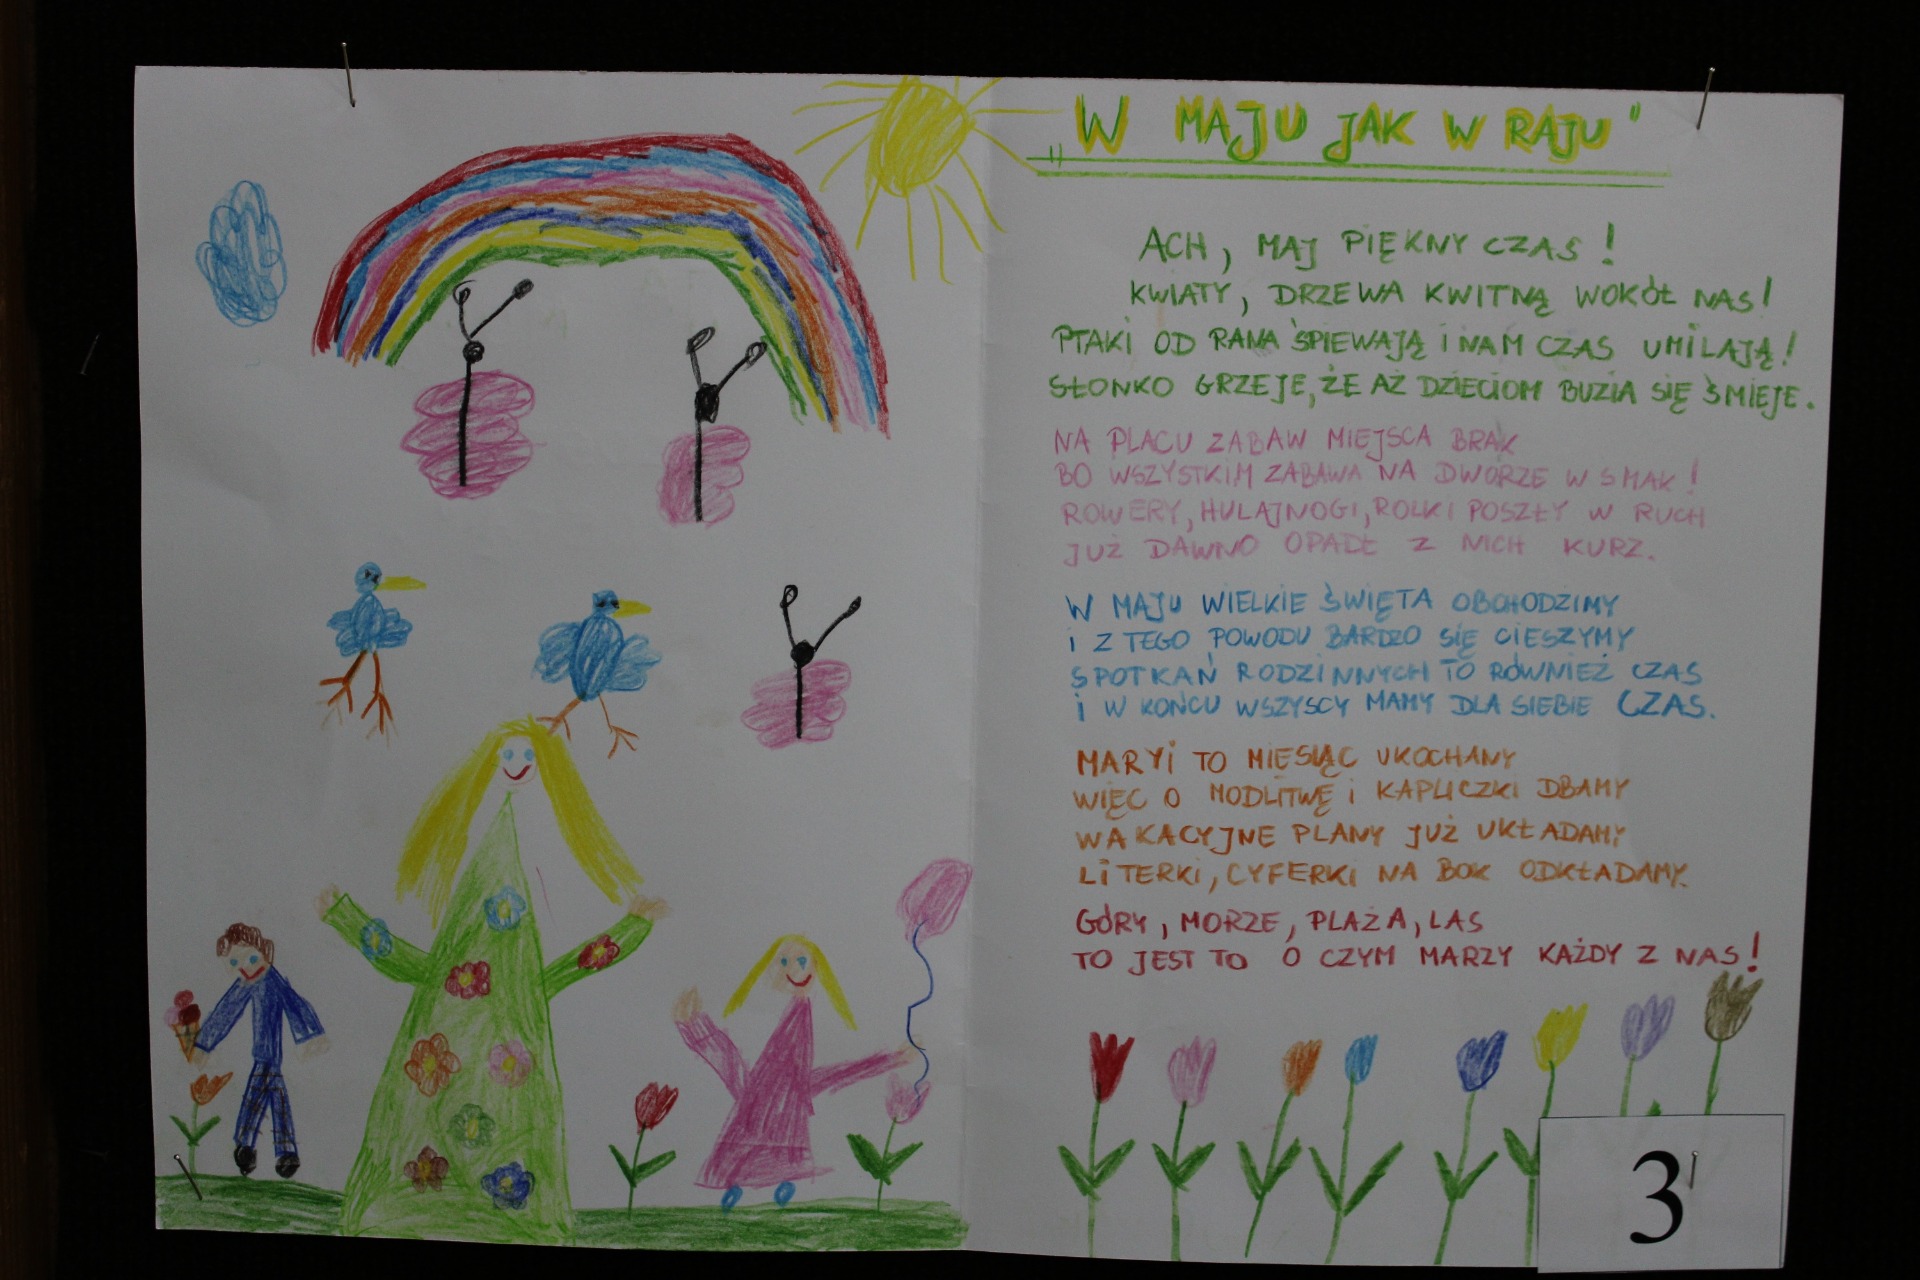 „W MAJU JAK W RAJU"
ACH, MAJ PIĘKNY CZAS!
KWIATY, DRZEWA KWITNĄ WOKÓŁ NAS!
PTAKI OD RANA ŚPIEWAJĄ I NAM CZAS UMILAJĄ!
SŁONKO GRZEJE, ŻE AŻ DZIECIOM BUZIA SIĘ ŚMIEJE.
NA PLACU ZABAW MIEJSCA BRAK
BO WSZYSTKIM ZABAWA NA DWORZE W SMAK!
ROWERY, HULAJNOGI, ROLKI POSZŁY W RUCH
JUŻ DAWNO OPADŁ Z NICH KURZ.
W MAJU WIELKIE ŚWIĘTA OBCHODZIMY
I Z TEGO POWODU BARDZO SIĘ CIESZYMY
SPOTKAŃ RODZINNYCH TO RÓWNIEŻ CZAS
I W KOŃCU WSZYSCY MAMY DLA SIEBIE CZAS.
MARYI TO MIESIĄC UKOCHANY
WIĘC O MODLITWĘ I KAPLICZKI DBAMY
WAKACYJNE PLANY JUŻ UKŁADAMY
LITERKI, CYFERKI NA BOK ODKŁADAMY.
GÓRY, MORZE, PLAŻA, LAS
TO JEST TO O CZYM MARZY KAŻDY Z NAS!
3